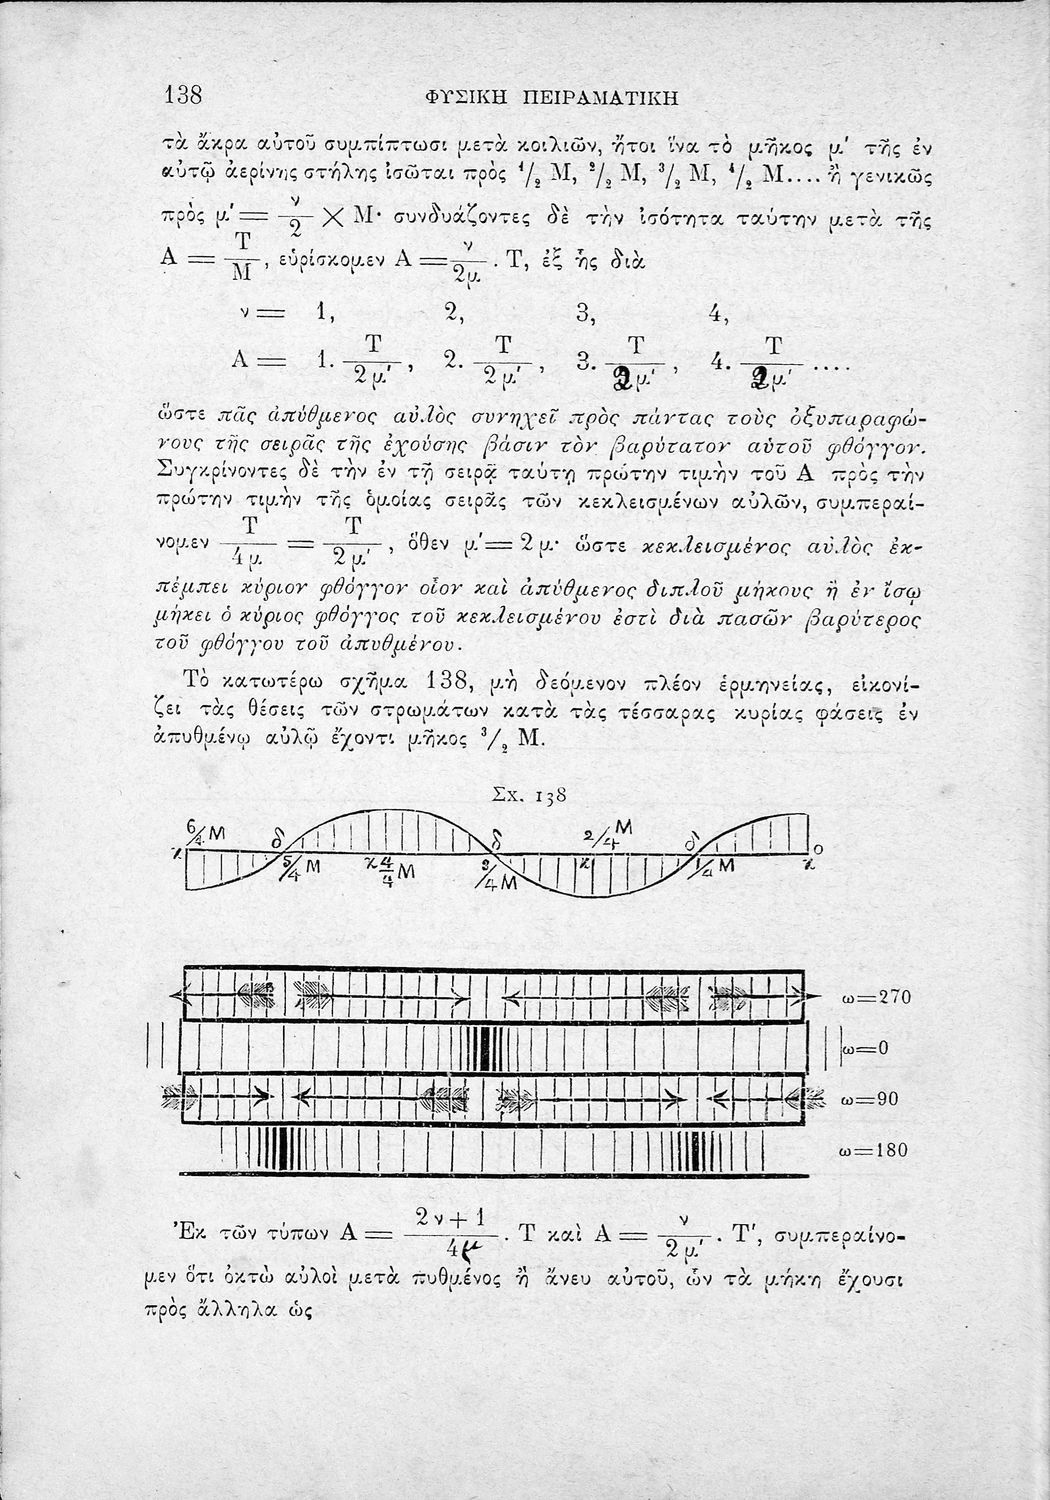 138 ΦΥΣΙΚΗ ΠΕΙΡΑΜΑΤΙΚΗ
τὰ ἄκρα αὐτοῦ συμπίπτωσι μετὰ κοιλιῶν, ἤτοι ἵνα τὸ μῆκος μ' τῆς ἐν
αὐτῷ ἀερίνης στήλης ἰσῶται πρὸς 1/2 Μ, 2/2 Μ, 3/2 Μ, 4/2 Μ.... ἢ γενικῶς
πρὸς μ' = ν/2 × Μ· συνδυάζοντες δὲ τὴν ἰσότητα ταύτην μετὰ τῆς
Α = Τ/Μ, εὑρίσκομεν Α = ν/2μ . Τ, ἐξ ἧς διὰ
ν = 1, 2, 3, 4,
Α = 1. Τ/2μ', 2. Τ/2μ', 3. Τ/2μ', 4. Τ/2μ' ....
ὥστε πᾶς ἀπύθμενος αὐλὸς συνηχεῖ πρὸς πάντας τοὺς ὀξυπαραφώ-
νους τῆς σειρᾶς τῆς ἐχούσης βάσιν τὸν βαρύτατον αὑτοῦ φθόγγον.
Συγκρίνοντες δὲ τὴν ἐν τῇ σειρᾷ ταύτῃ πρώτην τιμὴν τοῦ Α πρὸς τὴν
πρώτην τιμὴν τῆς ὁμοίας σειρᾶς τῶν κεκλεισμένων αὐλῶν, συμπεραί-
νομεν Τ/4μ = Τ/2μ', ὅθεν μ' = 2μ· ὥστε κεκλεισμένος αὐλὸς ἐκ-
πέμπει κύριον φθόγγον οἷον καὶ ἀπύθμενος διπλοῦ μήκους ἢ ἐν ἴσῳ
μήκει ὁ κύριος φθόγγος τοῦ κεκλεισμένου ἐστὶ διὰ πασῶν βαρύτερος
τοῦ φθόγγου τοῦ ἀπυθμένου.
Τὸ κατωτέρω σχῆμα 138, μὴ δεόμενον πλέον ἑρμηνείας, εἰκονί-
ζει τὰς θέσεις τῶν στρωμάτων κατὰ τὰς τέσσαρας κυρίας φάσεις ἐν
ἀπυθμένῳ αὐλῷ ἔχοντι μῆκος 3/2 Μ.
Σχ. 138
6/4 Μ δ δ 2/4 Μ δ ο
κ 5/4 Μ κ 4/4 Μ 3/4 Μ κ 1/4 Μ κ
ω=270
ω=0
ω=90
ω=180
Ἐκ τῶν τύπων Α = 2ν+1/4μ . Τ καὶ Α = ν/2μ' . Τ', συμπεραίνο-
μεν ὅτι ὀκτὼ αὐλοὶ μετὰ πυθμένος ἢ ἄνευ αὐτοῦ, ὧν τὰ μήκη ἔχουσι
πρὸς ἄλληλα ὡς